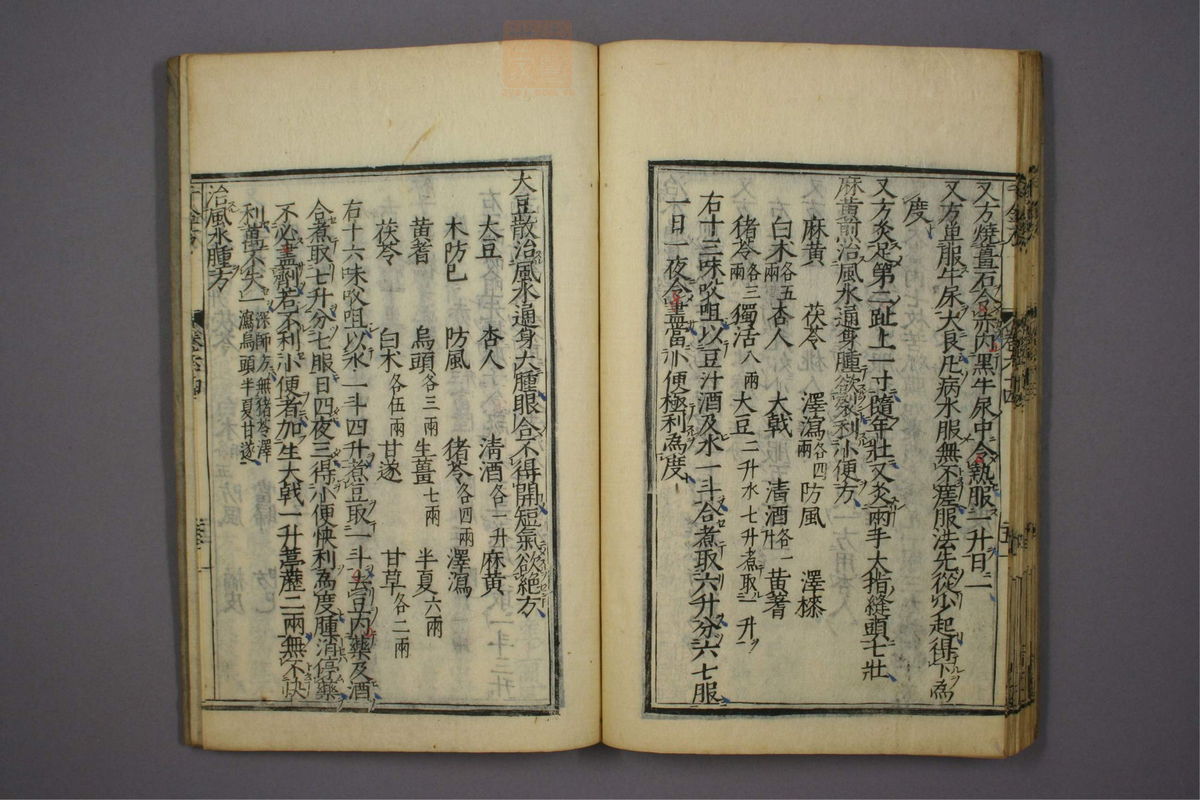 又方燒疊石令赤內黑牛尿中令熱服一升日一
又方單服牛尿大良凡病水服無不瘥服法先從少起得下為
度
又方灸足第二趾上一寸隨年壯又灸兩手大指縫頭七壯
麻黃煎治風水通身腫欲裂利小便方
麻黃 茯苓 澤瀉各四兩 防風 澤漆
白朮各五兩 杏人 大戟 清酒各一升 黃蓍
猪苓各三兩 獨活八兩 大豆二升水七升煮取一升
右十三味㕮咀以豆汁酒及水一斗合煮取六升分六七服
一日一夜令盡當小便極利為度
大豆散治風水通身大腫眼合不得開短氣欲絕方
大豆 杏人 清酒各一升 麻黃
木防巳 防風 猪苓各四兩 澤瀉
黃蓍 烏頭各三兩 生薑七兩 半夏六兩
茯苓 白朮各伍兩 甘遂 甘草各二兩
右十六味㕮咀以水一斗四升煮豆取一斗去豆內藥及酒
合煮取七升分七服日四夜三得小便快利為度腫消停藥
不必盡劑若不利小便者加生大戟一升葶藶二兩無不快
利萬不失一 深師方無猪苓澤瀉烏頭半夏甘遂
治風水腫方